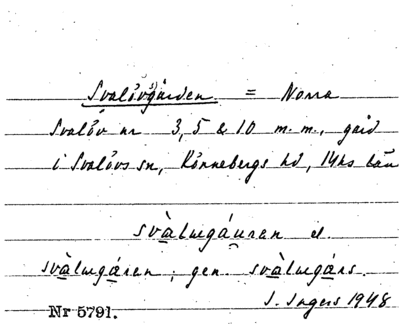 Svalövgården = Norra
Svalöv nr 3, 5 & 10 m.m., gård
i Svalövs sn, Rönnebergs hd, Mhs län
svàlugáuren el.
svàlugáren; gen. svàlugárs.
I. Ingers 1948
Nr 5791.